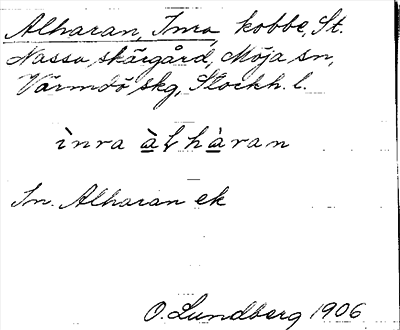 Alharan, Inra, kobbe, St.
Nassa skärgård, Möja sn,
Värmdö skg, Stockh. l.
ìnra àlhàran
In. Alharan ek
O. Lundberg 1906